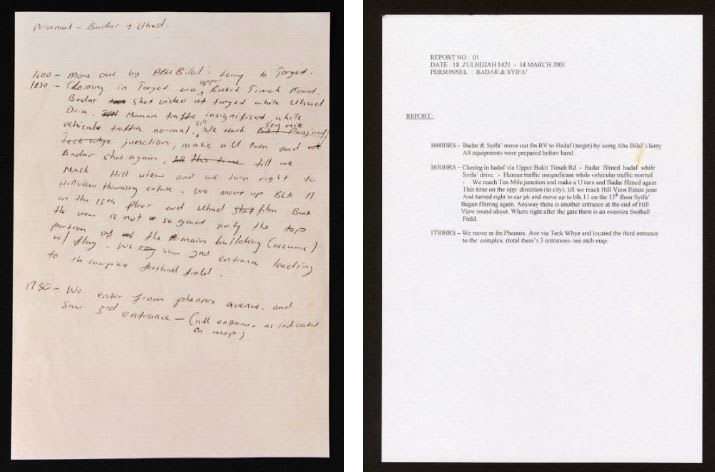 Personnel - Badar & Uhud.
1600 - Move out by Abu Bilal's lorry to Target.
1630 - Closing in Target via upper Bukit Timah Road.
Badar shot video of target while Uhud
Drive. Human traffic insignificant while
vehicular traffic normal. We reach Ten mile
junction, make a U turn and
Badar shot again, till we
reach Hill view and we turn right to
Hillview Housing estate. We move up Blk 11
on the 13th floor and Uhud film But
the view is not so good only the top
portion of the main building (assume)
w/ flag. We saw 2nd entrance leading
to the complex football field.
1730 - We enter from pheonix avenue and
saw 3rd entrance - (all entrances as indicated
in map).
REPORT NO : 01
DATE : 18 ZULHIJJAH 1421 - 14 MARCH 2001
PERSONNEL : BADAR & SYIFA'
REPORT :
1600HRS - Badar & Syifa' move out fm RV to Hadaf (target) by using Abu Bilal's lorry
All equipments were prepared before hand.
1630HRS - Closing in hadaf via Upper Bukit Timah Rd. - Badar filmed hadaf while
Syifa' drive. - Human traffic insignificant while vehicular traffic normal
- We reach Ten Mile junction and make a U turn and Badar filmed again
This time on the opp direction (to city), till we reach Hill View Estate junc
And turned right to car pk and move up to blk 11 on the 13th floor Syifa'
Began filming again. Anyway there is another entrance at the end of Hill
View round about. Where right after the gate there is an oversize football
Field.
1730HRS - We move in fm Phoenix Ave via Teck Whye and located the third entrance
to the complex. (total there's 3 entrances- see atch map